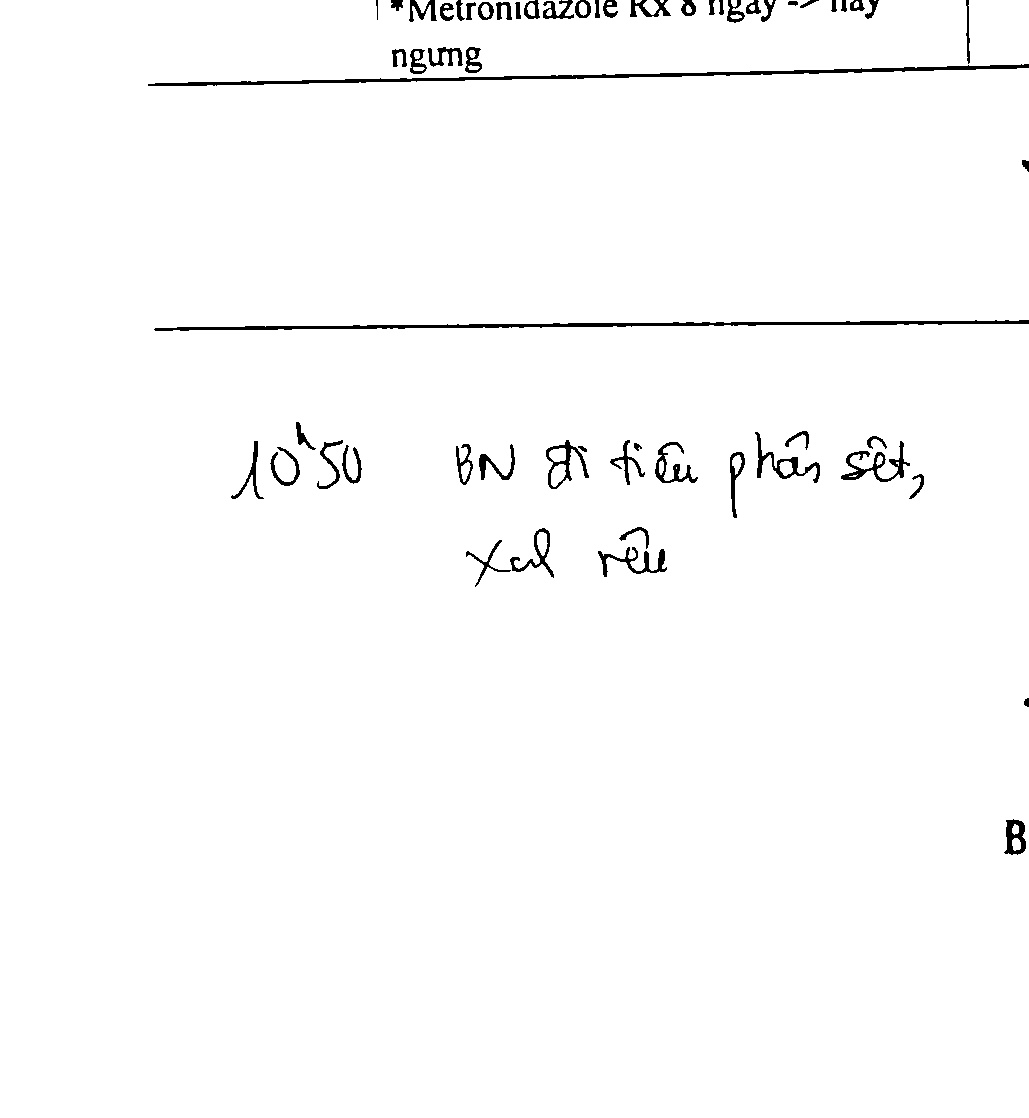 *Metronidazole Rx 8 ngày -> nay
ngưng
10h50 BN đi tiêu phân sệt,
xanh rêu
B